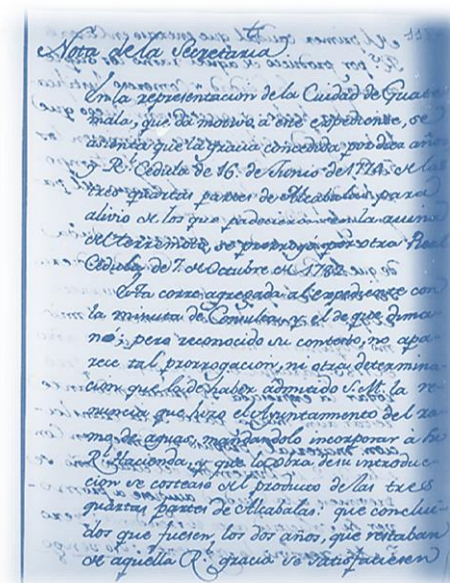 Nota de la Secretaria.
En la representacion de la Ciudad de Guate-
mala, que da motivo a este expediente, se
asienta que la gracia concedida por diez años
y Rl. Cedula de 16. de Junio de 1774. de las
tres quartas partes de Alcabalas para
alivio de los que padecieron con la ruina
del terremoto, se prorrogó por otra Real
Cedula, de 7. de Octubre de
Esta corre agregada al expediente con
la minuta de Consulta, y el de que dima-
nó; pero reconocido su contexto, no apa-
rece tal prorrogacion, ni otra determina-
cion que la de haber admitido S. M. la re-
nuncia que hizo el Ayuntamento del ra-
mo de aguas, mandandolo incorporar à su
R. Hacienda, y que la obra de su introduc-
cion se costease del producto de las tres
quartas partes de Alcabalas: que conclui-
dos que fuesen, los dos años, que restaban
de aquella R. gracia se satisfaciesen